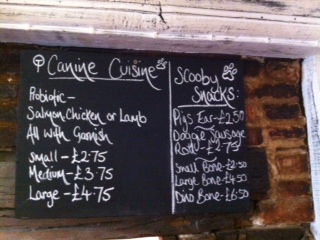 Canine Cuisine
Probiotic -
Salmon, Chicken or Lamb
All with Garnish
Small - £2.75
Medium - £3.75
Large - £4.75
Scooby
Snacks:
Pigs Ear - £2.50
Doggie Sausage
Roll - £2.75
Small Bone - £2.50
Large Bone - £4.50
Dino Bone - £6.50